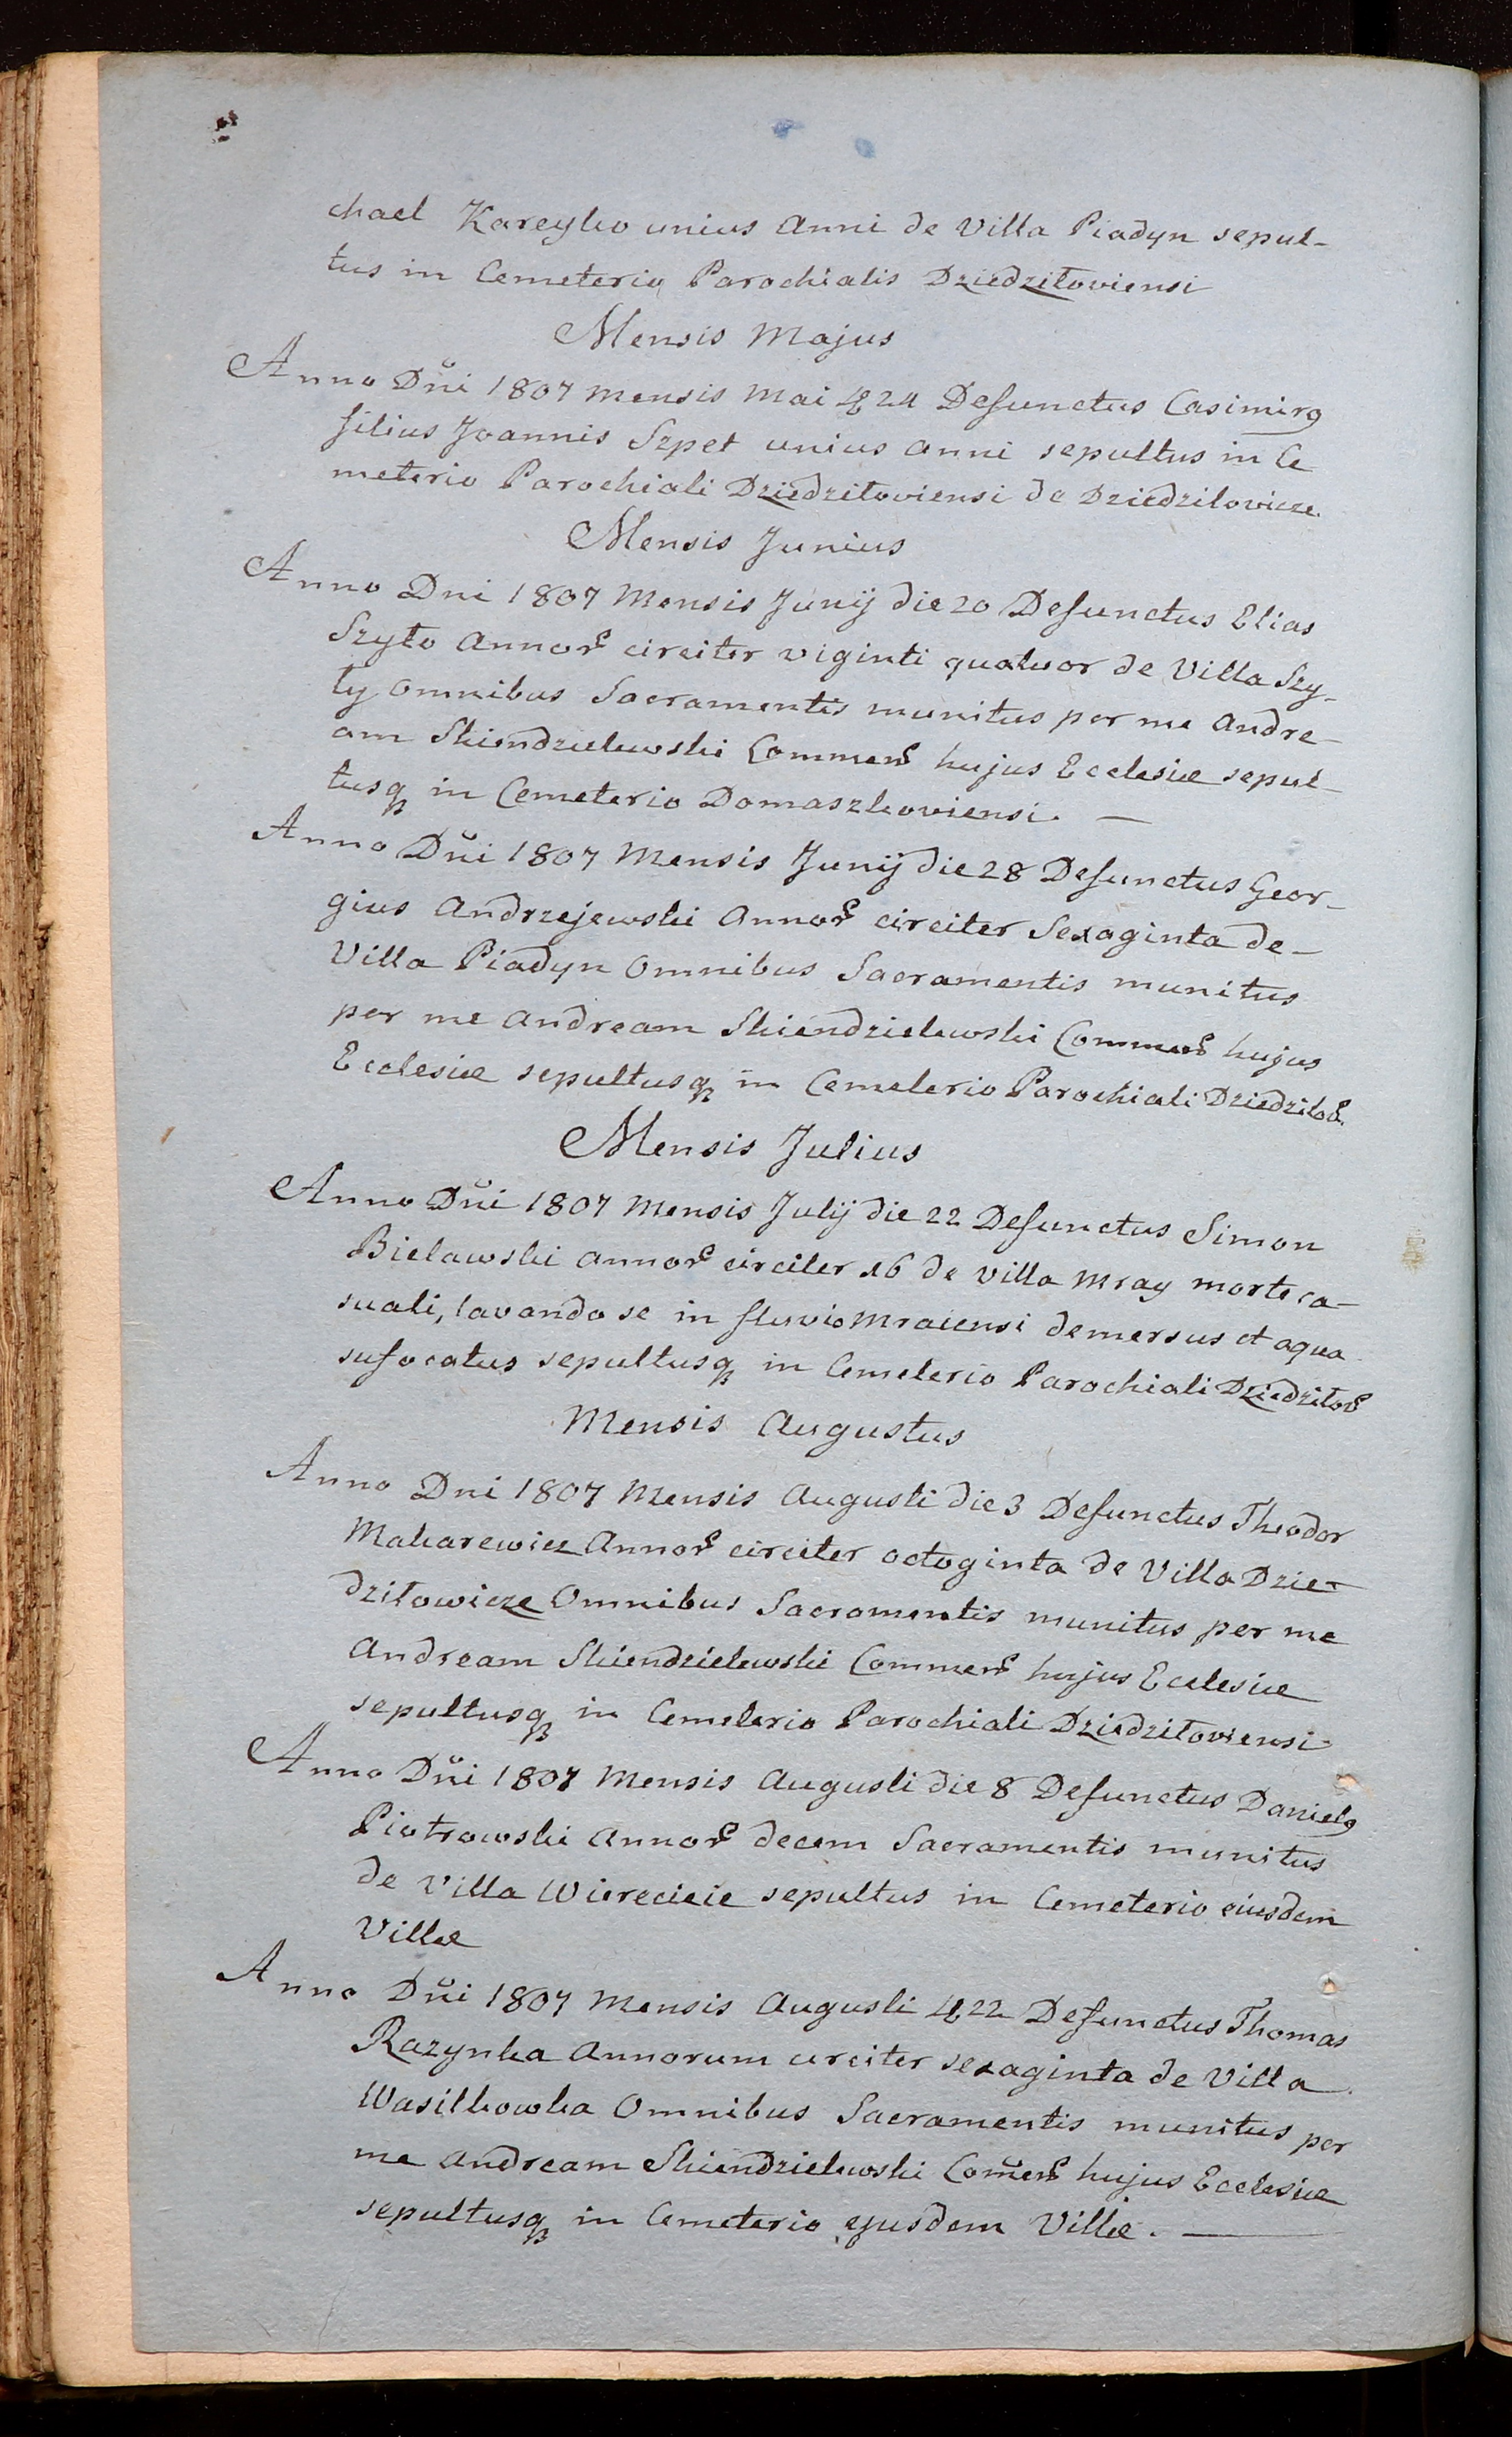 chael Kareyko unius Anni de Villa Piadyn sepul-
tus in Cemeterio Parochialis Dziedziłoviensi
Mensis Majus
Anno Dñi 1807 Mensis Mai d 24 Defunctus Casimirꝯ
filius Joannis Szpet unius anni sepultus in Ce
meterio Parochiali Dziedziłoviensi de Dziedzilovicze.
Mensis Junius
Anno Dni 1807 Mensis Junij die 20 Defunctus Elias
Szyło Annorꝭ circiter viginti quatuor de Villa Szy-
ły Omnibus Sacramentis munitus per me Andre-
am Skiendzielewski Commenꝭ hujus Ecclesiæ sepul-
tusqꝫ in Cemeterio Domaszkoviensi. —
Anno Dñi 1807 Mensis Junij die 28 Defunctus Geor-
gius Andrzejewski Annorꝭ circiter Sexaginta de-
Villa Piadyn Omnibus Sacramentis munitus
per me Andream Skiendzielewski Commenꝭ hujus
Ecclesiæ sepultusqꝫ in Cemeterio Parochiali Dziedziłoꝭ.
Mensis Julius
Anno Dñi 1807 Mensis Julij die 22 Defunctus Simon
Bielawski Annorꝭ circiter 16 de Villa Mray morte ca-
suali, lavando se in fluvio Mraiensi demersus et aqua
sufocatus sepultusqꝫ in Cemeterio Parochiali Dziedziłovꝭ
Mensis Augustus
Anno Dni 1807 Mensis Augusti die 3 Defunctus Theodor
Makarewicz Annorꝭ circiter octoginta de Villa Dzie-
dziłowicze Omnibus Sacramentis munitus per me
Andream Skiendzielewski Commenꝭ hujus Ecclesiæ
sepultusqꝫ in Cemeterio Parochiali Dziedziłoviensi
Anno Dñi 1807 Mensis Augusti die 8 Defunctus Danielꝯ
Piotrowski Annorꝭ decem Sacramentis munitus
de Villa Wierecieie sepultus in Cemeterio eiusdem
Villæ
Anno Dñi 1807 Mensis Augusti d 22 Defunctus Thomas
Razynka Annorum circiter sexaginta de Villa
Wasilkowka Omnibus Sacramentis munitus per
me Andream Skiendzielewski Com̃enꝭ hujus Ecclesiæ
sepultusqꝫ in Cemeterio ejusdem Villæ. —